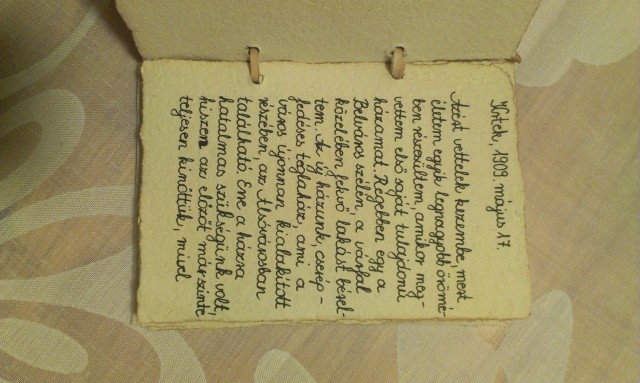 Vrtek, 1909. május 17.
Azért vettelek kezembe, mert
életem egyik legnagyobb öröme-
ben részesültem, amikor meg-
vettem első saját tulajdonú
házamat. Régebben egy a
Belváros szélén, a várfal
közelében fekvő lakást bérel-
tem. Az új házunk, cserép-
fedéses téglaház, ami a
város újonnan kialakított
részében, az Alsóvárosban
található. Erre a házra
hatalmas szükségünk volt,
hiszen az előzőt már szinte
teljesen kinőttük, mivel